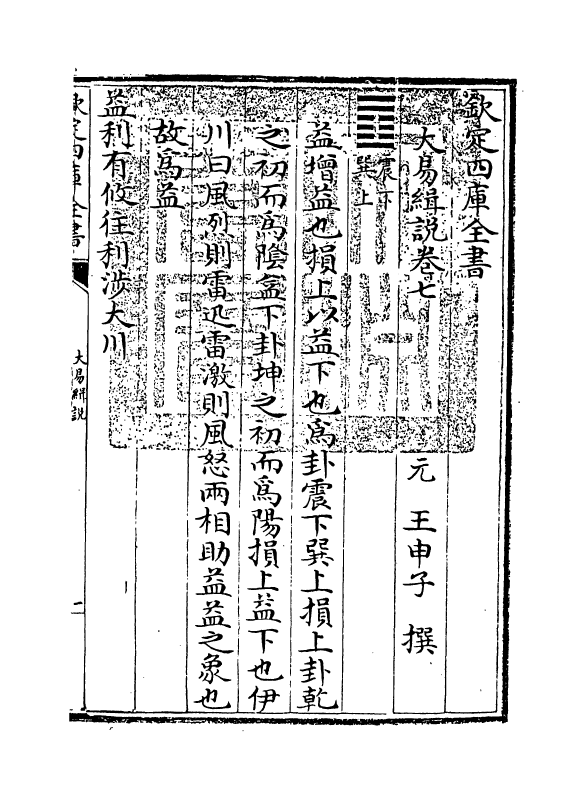 欽定四庫全書
大易緝說卷七
元 王申子 撰
䷩
震下
巽上
益増益也損上以益下也為卦震下巽上損上卦乾
之初而為陰益下卦坤之初而為陽損上益下也伊
川曰風烈則雷迅雷激則風怒兩相助益益之象也
故為益
益利有攸往利渉大川
欽定四庫全書
大易緝說
一